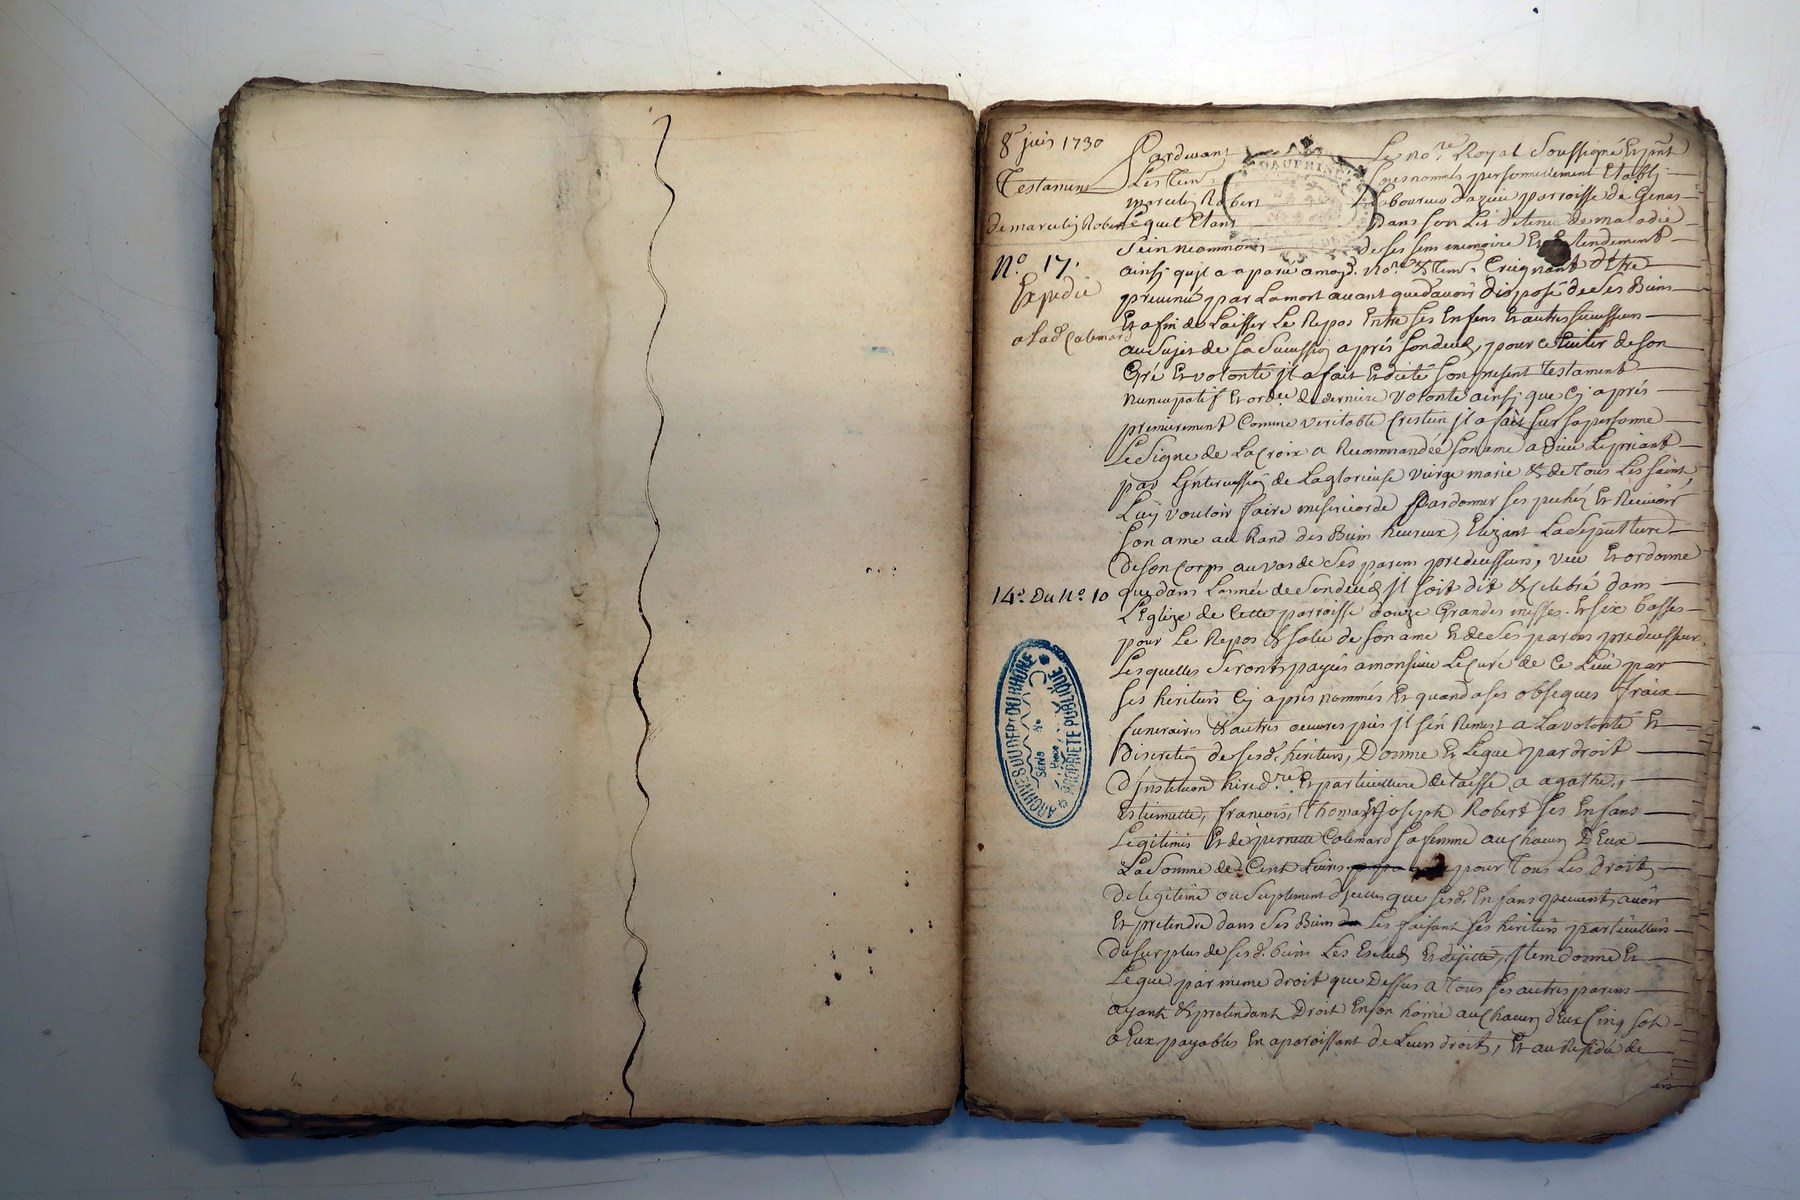 8e juin 1730
Testament
de marcelin Robert
No. 17.
Expedié
a lad. Calemard
14e. Du No. 10
ARCHIVES DU DEPt DU RHÔNE
PROPRIETE PUBLIQUE
Série No
Pardevant Le no.re Royal Soussigné Et pnt
Les tem. personnellement Etably
marcelin Robert Laboureur parroisse de Genas
Lequel Etant dans son Lit detenu de maladie
Sein neanmoins de ses sens memoire Et Entendement
ainsy qu'jl a aparu a moyd. no.re & tem. Craignant d'Etre
prevenu par La mort avant que d'avoir disposé de ses Biens
Et afin de Laisser Le Repos Entre ses Enfens Et autres successeurs
au sujet de sa succession aprés son deced, pour ce de son
Gré Et volonté jl a fait Et dicté son present testament
nuncupatif Et ordce de derniere volonté ainsy que Cy aprés
premierement Comme veritable Crestien jl a fait sur sa personne
Le Signe de La Croix a Recommandée son ame a Dieu Le priant
par L'jntercession de La glorieuse vierge marie & de tous Les saints
Luy vouloir faire misericorde Pardonner ses pechez Et Recevoir
son ame au Rand des Bien heureux, Elizant La Sepulture
de son Corps au vas de ses parens predecesseurs, veu Et ordonne
que dans L'année de son deced jl soit dit & celebré dans
L'Eglize de Cette parroisse douze Grandes messes Et six basses
pour Le Repos & salu de son ame Et de ses parens predecesseurs
Lesquelles seront payés a monsieur Le Curé de Ce Lieu par
ses heritiers Cy aprés nommés Et quand a ses obseques fraix
funeraires & autres oeuvres pies jl s'en Remest a La volonté Et
Discretion de sesd. heritiers, Donne Et Legue par droit
d'jnstitution hired.re Et particulliere delaisse a agathe,
Estiennette, francois, Thomas Et joseph Robert ses Enfans
Legitimes Et de pernette Calemard sa femme au Chacun D'Eux
La somme de Cent Livres pour Tous Les droits
de legitime ou suplement d'jcelles que sesd. Enfans peuvent avoir
Et pretendre dans ses Biens Les faisant ses heritiers particulliers
du surplus de sesd. biens Les Exclud Et dejette, jtem donne Et
Legue par meme droit que Dessus a Tous ses autres parens
ayant & pretendant Droit En son hoirie au Chacun d'Eux Cinq sols
a Eux payables En aparoissant de Leurs droits, Et au Residu de